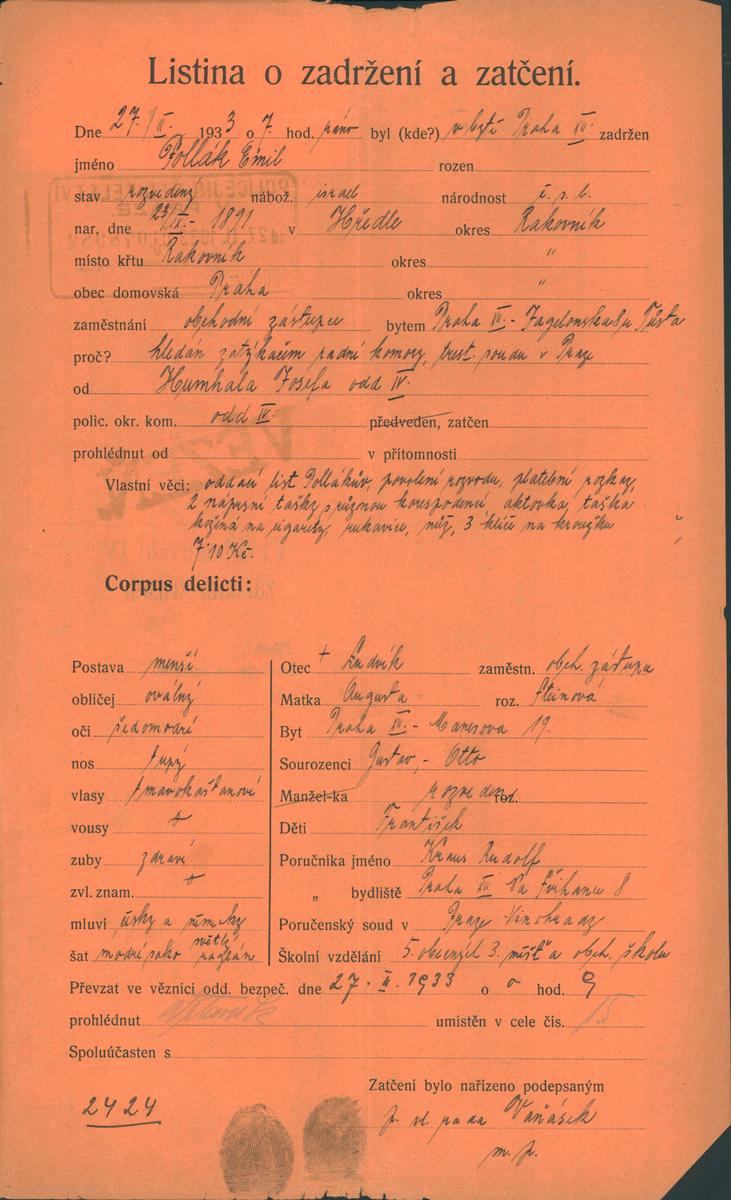 Listina o zadržení a zatčení.
Dne 27./II. 1933 o 7. hod. ráno byl (kde?) v bytě Praha XII. zadržen
jméno Pollák Emil rozen
stav rozvedený nábož. israel národnost č. s. l.
nar, dne 23/IX.- 1891 v Hředle okres Rakovník
místo křtu Rakovník okres "
obec domovská Praha okres "
zaměstnání obchodní zástupce bytem Praha XII.- Jagelonská 8
proč? hledán zatýkačem radní komory, trest. soudu v Praze
od Humhala Josefa odd IV.
polic. okr. kom. odd IV. předveden, zatčen
prohlédnut od v přítomnosti
Vlastní věci: oddací list Pollákův, povolení rozvodu, platební rozkaz,
2 náprsní tašky s různou korespodencí, aktovka, taška
kožená na cigarety, rukavice, nůž, 3 klíče na kroužku
7˙10 Kč.
Corpus delicti:
Postava menší
obličej oválný
oči šedomodré
nos tupý
vlasy tmavokaštanové
vousy +
zuby zdravé
zvl. znam. +
mluví česky a německy
šat modré sako světlý raglán
Otec + Ludvík zaměstn. obch. zástupce
Matka Augusta roz. Steinová
Byt Praha XII.- Manesova 19.
Sourozenci Gustav,- Otto
Manžel-ka rozveden roz.
Děti František
Poručníka jméno Kraus Rudolf
„ bydliště Praha XII Na Švihance 8
Poručenský soud v Praze Vinohrady
Školní vzdělání 5. obecných 3. měšť a obch. školu
Převzat ve věznici odd. bezpeč. dne 27. II. 1933 o hod. 9
prohlédnut umístěn v cele čís. 15
Spoluúčasten s
Zatčení bylo nařízeno podepsaným
2424
p. vl. rada Vaňásek
m. p.